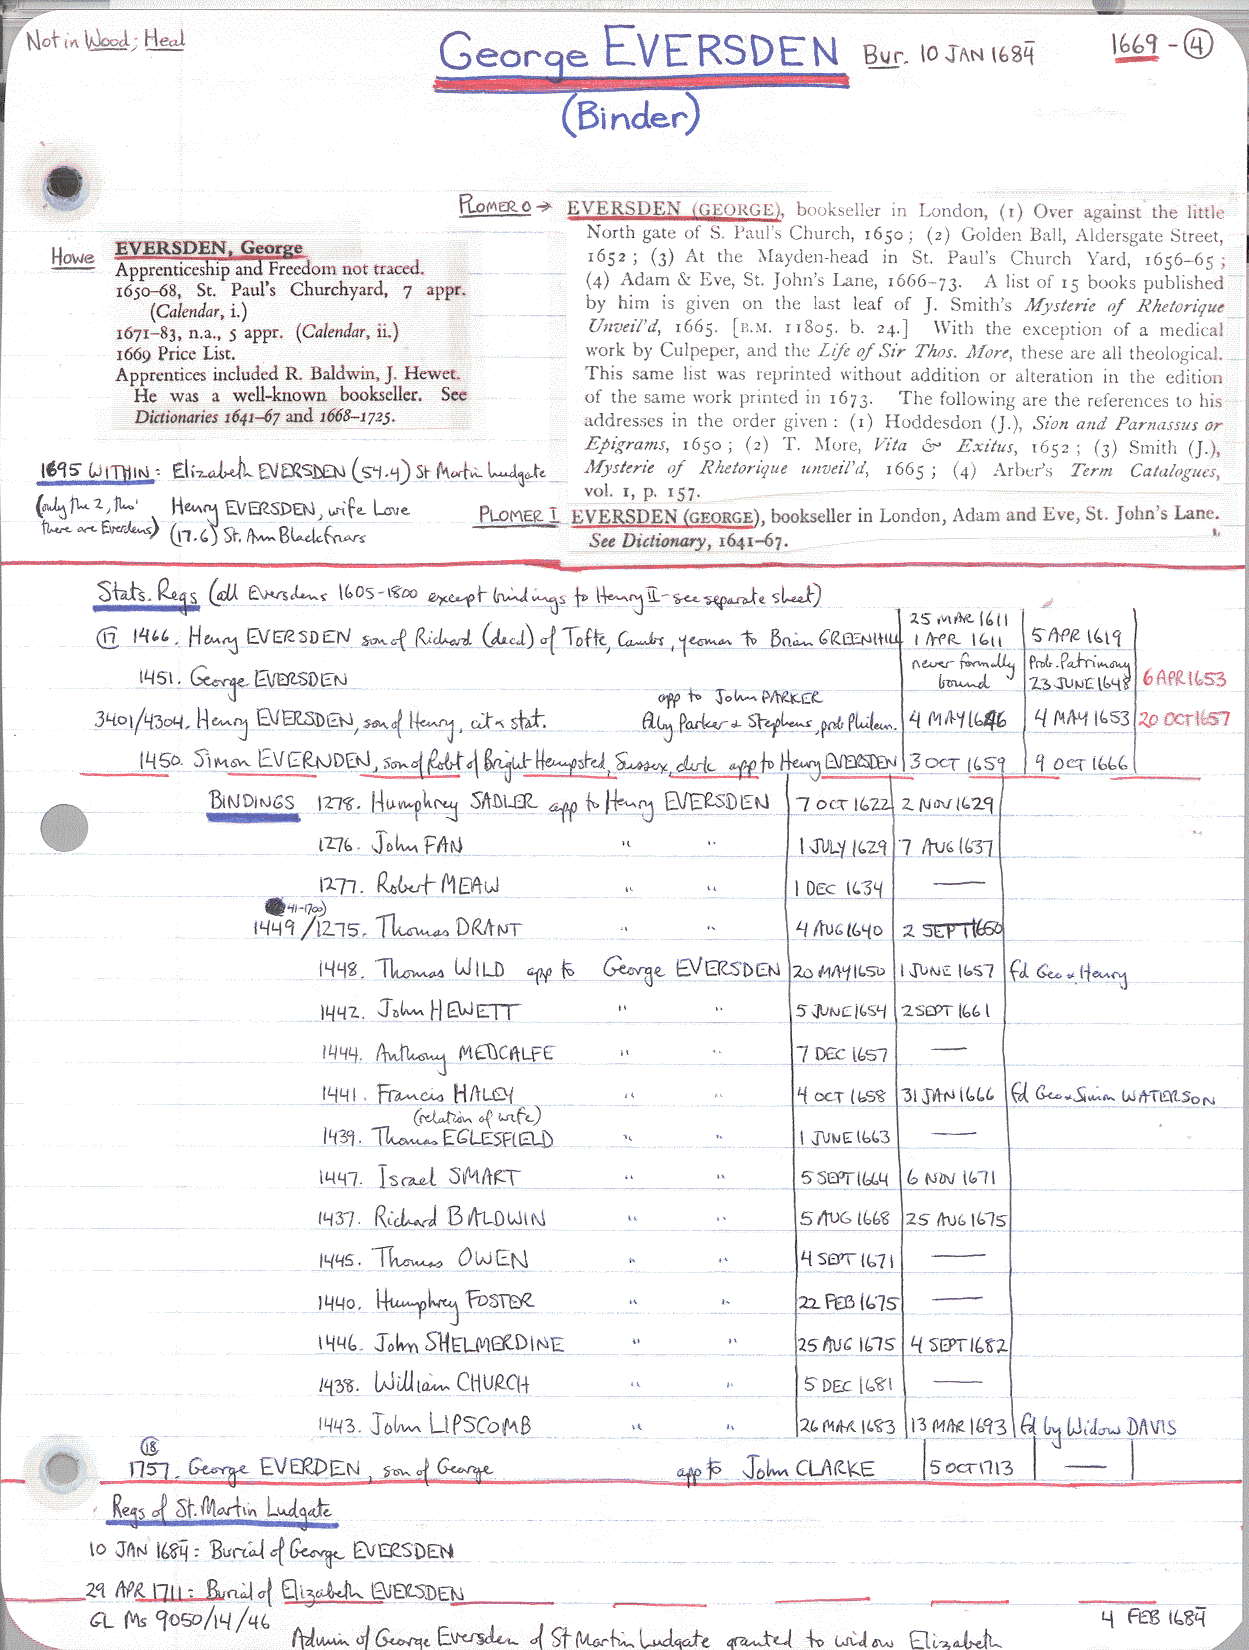 Not in Wood; Heal
George EVERSDEN Bur. 10 JAN 1684̄
1669 - ④
(Binder)
PLOMER O → EVERSDEN (GEORGE), bookseller in London, (1) Over against the little
North gate of S. Paul's Church, 1650; (2) Golden Ball, Aldersgate Street,
1652; (3) At the Mayden-head in St. Paul's Church Yard, 1656-65;
(4) Adam & Eve, St. John's Lane, 1666-73. A list of 15 books published
by him is given on the last leaf of J. Smith's Mysterie of Rhetorique
Unveil'd, 1665. [B.M. 11805. b. 24.] With the exception of a medical
work by Culpeper, and the Life of Sir Thos. More, these are all theological.
This same list was reprinted without addition or alteration in the edition
of the same work printed in 1673. The following are the references to his
addresses in the order given: (1) Hoddesdon (J.), Sion and Parnassus or
Epigrams, 1650; (2) T. More, Vita & Exitus, 1652; (3) Smith (J.),
Mysterie of Rhetorique unveil'd, 1665; (4) Arber's Term Catalogues,
vol. 1, p. 157.
PLOMER I EVERSDEN (GEORGE), bookseller in London, Adam and Eve, St. John's Lane.
See Dictionary, 1641-67.
HOWE
EVERSDEN, George
Apprenticeship and Freedom not traced.
1650-68, St. Paul's Churchyard, 7 appr.
(Calendar, i.)
1671-83, n.a., 5 appr. (Calendar, ii.)
1669 Price List.
Apprentices included R. Baldwin, J. Hewet.
He was a well-known bookseller. See
Dictionaries 1641-67 and 1668-1725.
1695 WITHIN: Elizabeth EVERSDEN (54.4) St Martin Ludgate
(only the 2, tho' there are Everdens)
Henry EVERSDEN, wife Love
(17.6) St. Ann Blackfriars
Stats. Regs (all Eversdens 1605-1800 except bindings to Henry II - see separate sheet)
⑰ 1466. Henry EVERSDEN son of Richard (decd) of Tofte, Cambs, yeoman to Brian GREENHILL 25 MAR 1611 1 APR 1611 5 APR 1619
1451. George EVERSDEN never formally bound Prob. Patrimony 23 JUNE 1648 6 APR 1653
3401/4304. Henry EVERSDEN, son of Henry, cit & stat. app to John PARKER 4 MAY 1646 4 MAY 1653 20 OCT 1657
Alby Parker & Stephens, prob Philem.
1450. Simon EVERNDEN, son of Robt of Bright Hempsted, Sussex, clerk app to Henry EVERSDEN 3 OCT 1659 9 OCT 1666
BINDINGS 1278. Humphrey SADLER app to Henry EVERSDEN 7 OCT 1622 2 NOV 1629
1276. John FAN " " 1 JULY 1629 7 AUG 1637
1277. Robert MEAW " " 1 DEC 1634 —
41-1700)
1449/1275. Thomas DRANT " " 4 AUG 1640 2 SEPT 1650
1448. Thomas WILD app to George EVERSDEN 20 MAY 1650 1 JUNE 1657 fd Geo & Henry
1442. John HEWETT " " 5 JUNE 1654 2 SEPT 1661
1444. Anthony MEDCALFE " " 7 DEC 1657 —
1441. Francis HALEY " " 4 OCT 1658 31 JAN 1666 fd Geo & Simon WATERSON
(relation of wife)
1439. Thomas EGLESFIELD " " 1 JUNE 1663 —
1447. Israel SMART " " 5 SEPT 1664 6 NOV 1671
1437. Richard BALDWIN " " 5 AUG 1668 25 AUG 1675
1445. Thomas OWEN " " 4 SEPT 1671 —
1440. Humphrey FOSTER " " 22 FEB 1675 —
1446. John SHELMERDINE " " 25 AUG 1675 4 SEPT 1682
1438. William CHURCH " " 5 DEC 1681 —
1443. John LIPSCOMB " " 26 MAR 1683 13 MAR 1693 fd by Widow DAVIS
⑱
1757. George EVERDEN, son of George app to John CLARKE 5 OCT 1713 —
Regs of St. Martin Ludgate
10 JAN 1684̄: Burial of George EVERSDEN
29 APR 1711: Burial of Elizabeth EVERSDEN
GL Ms 9050/14/46 4 FEB 1684̄
Admin of George Eversden of St Martin Ludgate granted to widow Elizabeth